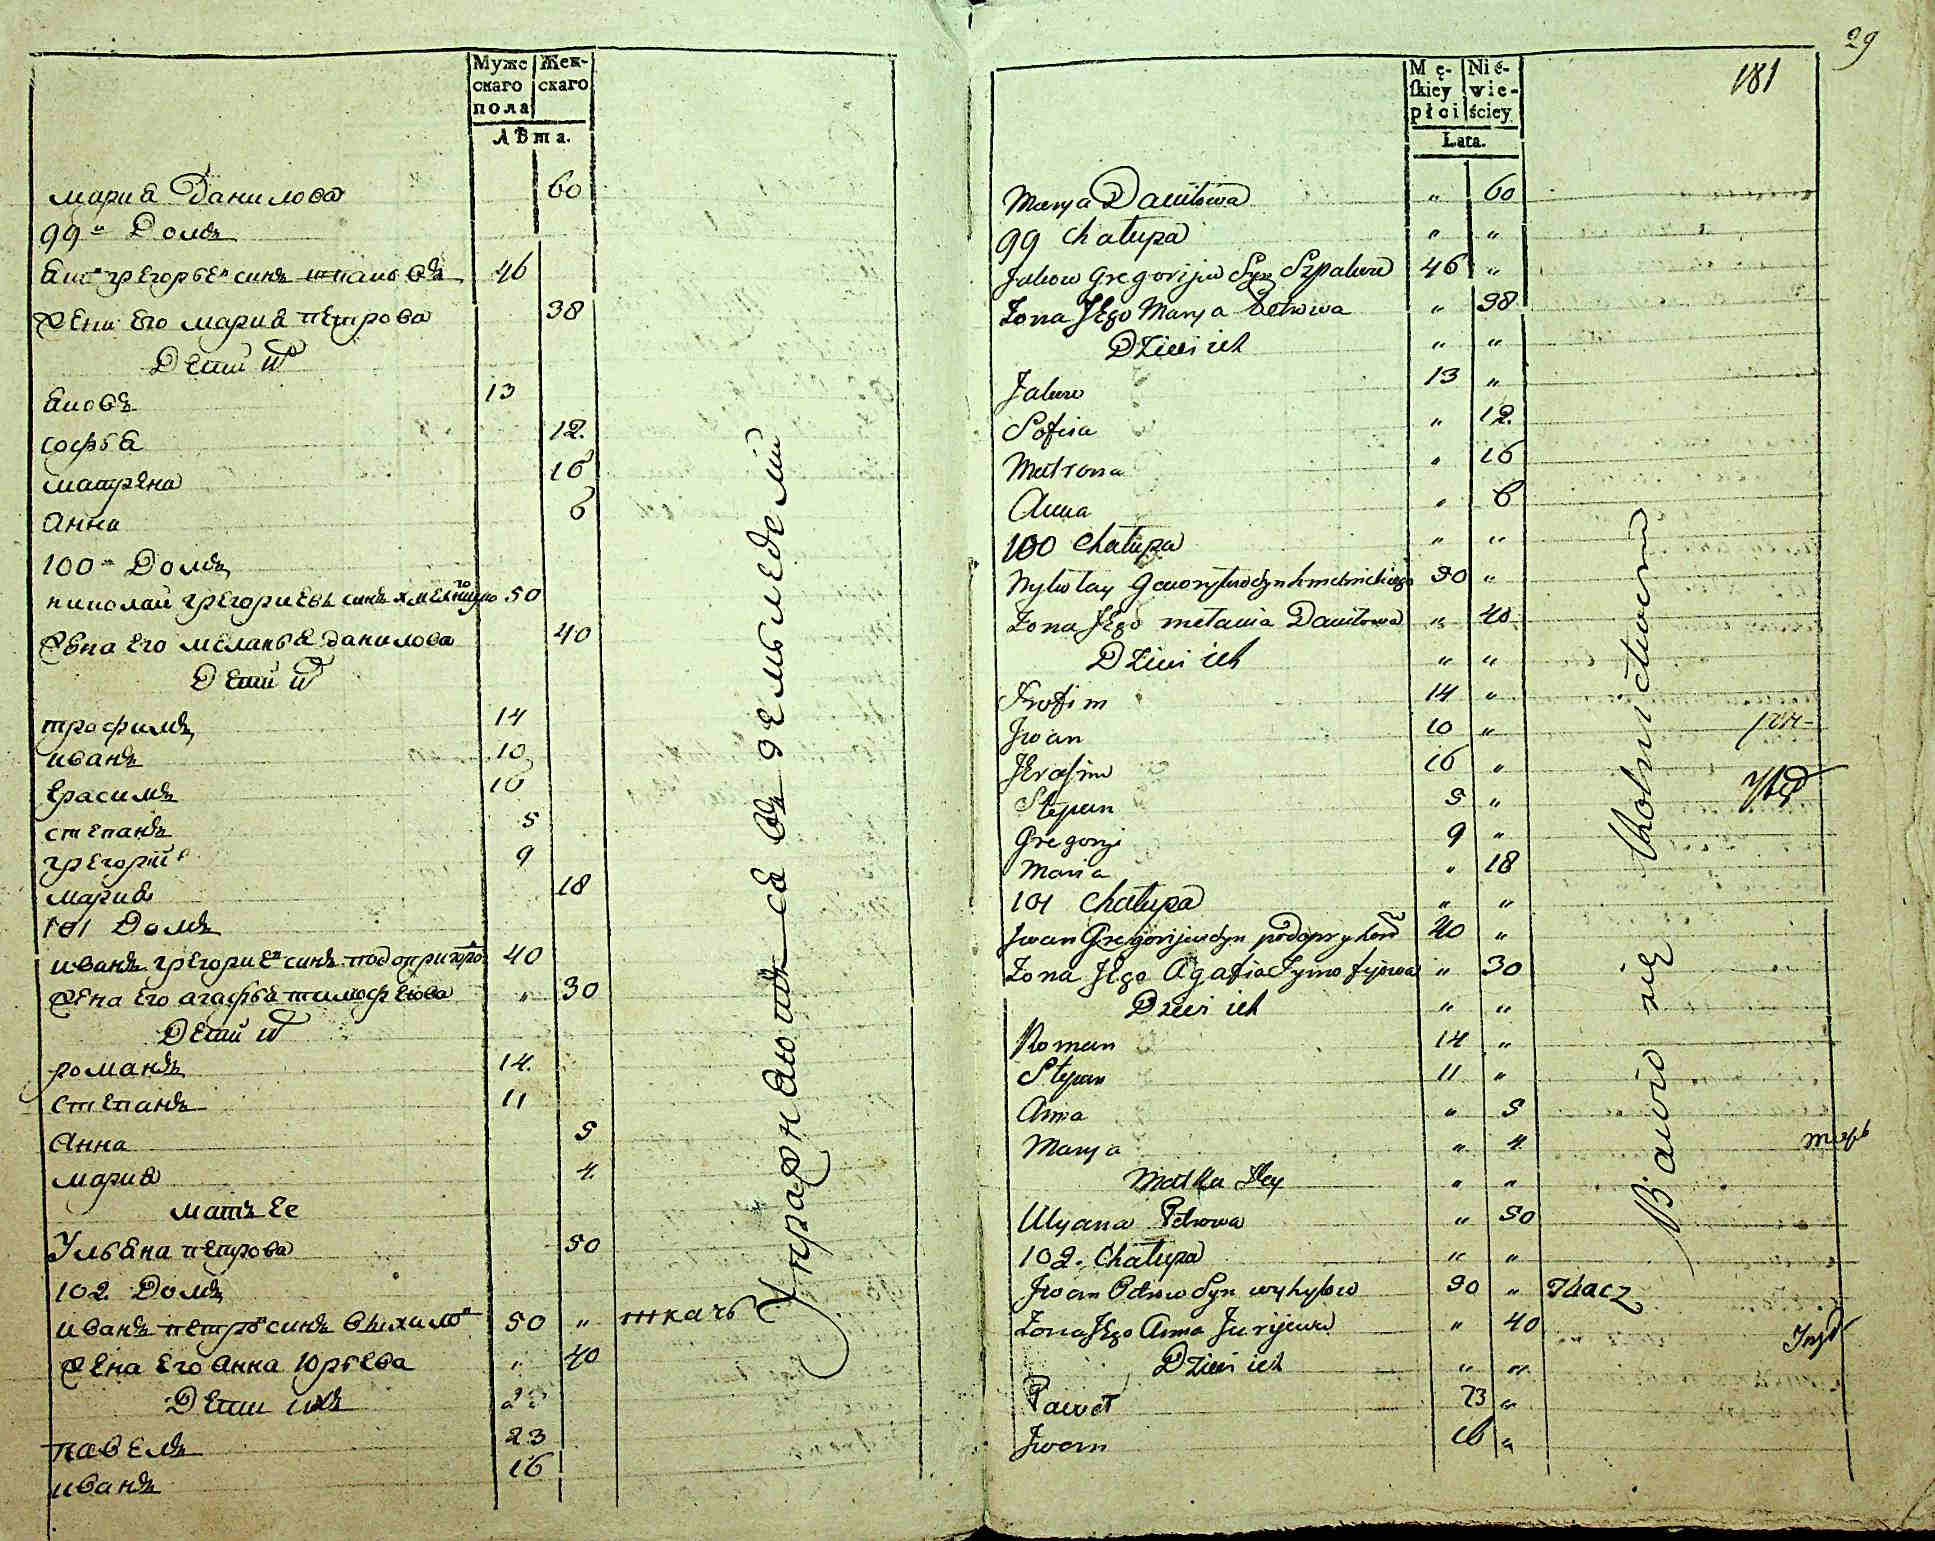 Мужс
скаго
пола
Жен-
скаго
Лѣта.
мариѣ Данилова 60
99" Домъ
грегорьевъ синъ 46
жена его мариѣ петрова 38
Дети ихъ
ѣковъ 13
софьѣ 12.
матрена 16
Анна 6
100" Домъ
николай грегориевъ синъ 50
жена его меланьѣ данилова 40
Дети ихъ
трофимъ 14
иванъ 10
ерасимъ 16
степанъ 5
грегорий 9
мариѣ 18
101 Домъ
иванъ грегориевъ синъ подопригоро 40
жена его агафьѣ тимофеюва " 30
Дети ихъ
романъ 14.
степанъ 11
Анна 5
мариѣ 4.
мать ее
Ульѣна петрова 50
102 Домъ
иванъ петровъ синъ 50 " ткачь
жена его анна юрьева " 40
Дети ихъ
павелъ 23
иванъ 16
Упражнѣютсѣ въ земледелии
29
181
Mę-
skiey
płci
Nie-
wie-
ściey
Lata.
Marya Daniłowa " 60
99 Chałupa " "
Jakow Gregorijw Syn Szpakow 46 "
Zona Jego Marya Petrowa " 38
Dzieci ich " "
Jakow 13 "
Sofiia " 12.
Matrona " 16
Anna " 6
100 Chałupa " "
Zona Jego Melania Daniłowa " 40
Dzieci ich " "
Trofim 14 "
Jwan 10 "
Jerasim 16 "
Stepan 5 "
Gregory 9 "
Maria " 18
101 Chałupa " "
Jwan Gregorijw Syn 40 "
Zona Jego Agafia Tymofijowa " 30
Dzieci ich " "
Roman 14 "
Stepan 11 "
Anna " 5
Marya " 4
Matka Jey " "
Ulyana Petrowa " 50
102. Chałupa " "
Jwan Petrow Syn Wyhyłow 50 " Tkacz
Zona Jego Anna Jurijewa " 40
Dzieci ich " "
Paweł 23 "
Jwan 16 "
Bawio się Rolnictwem